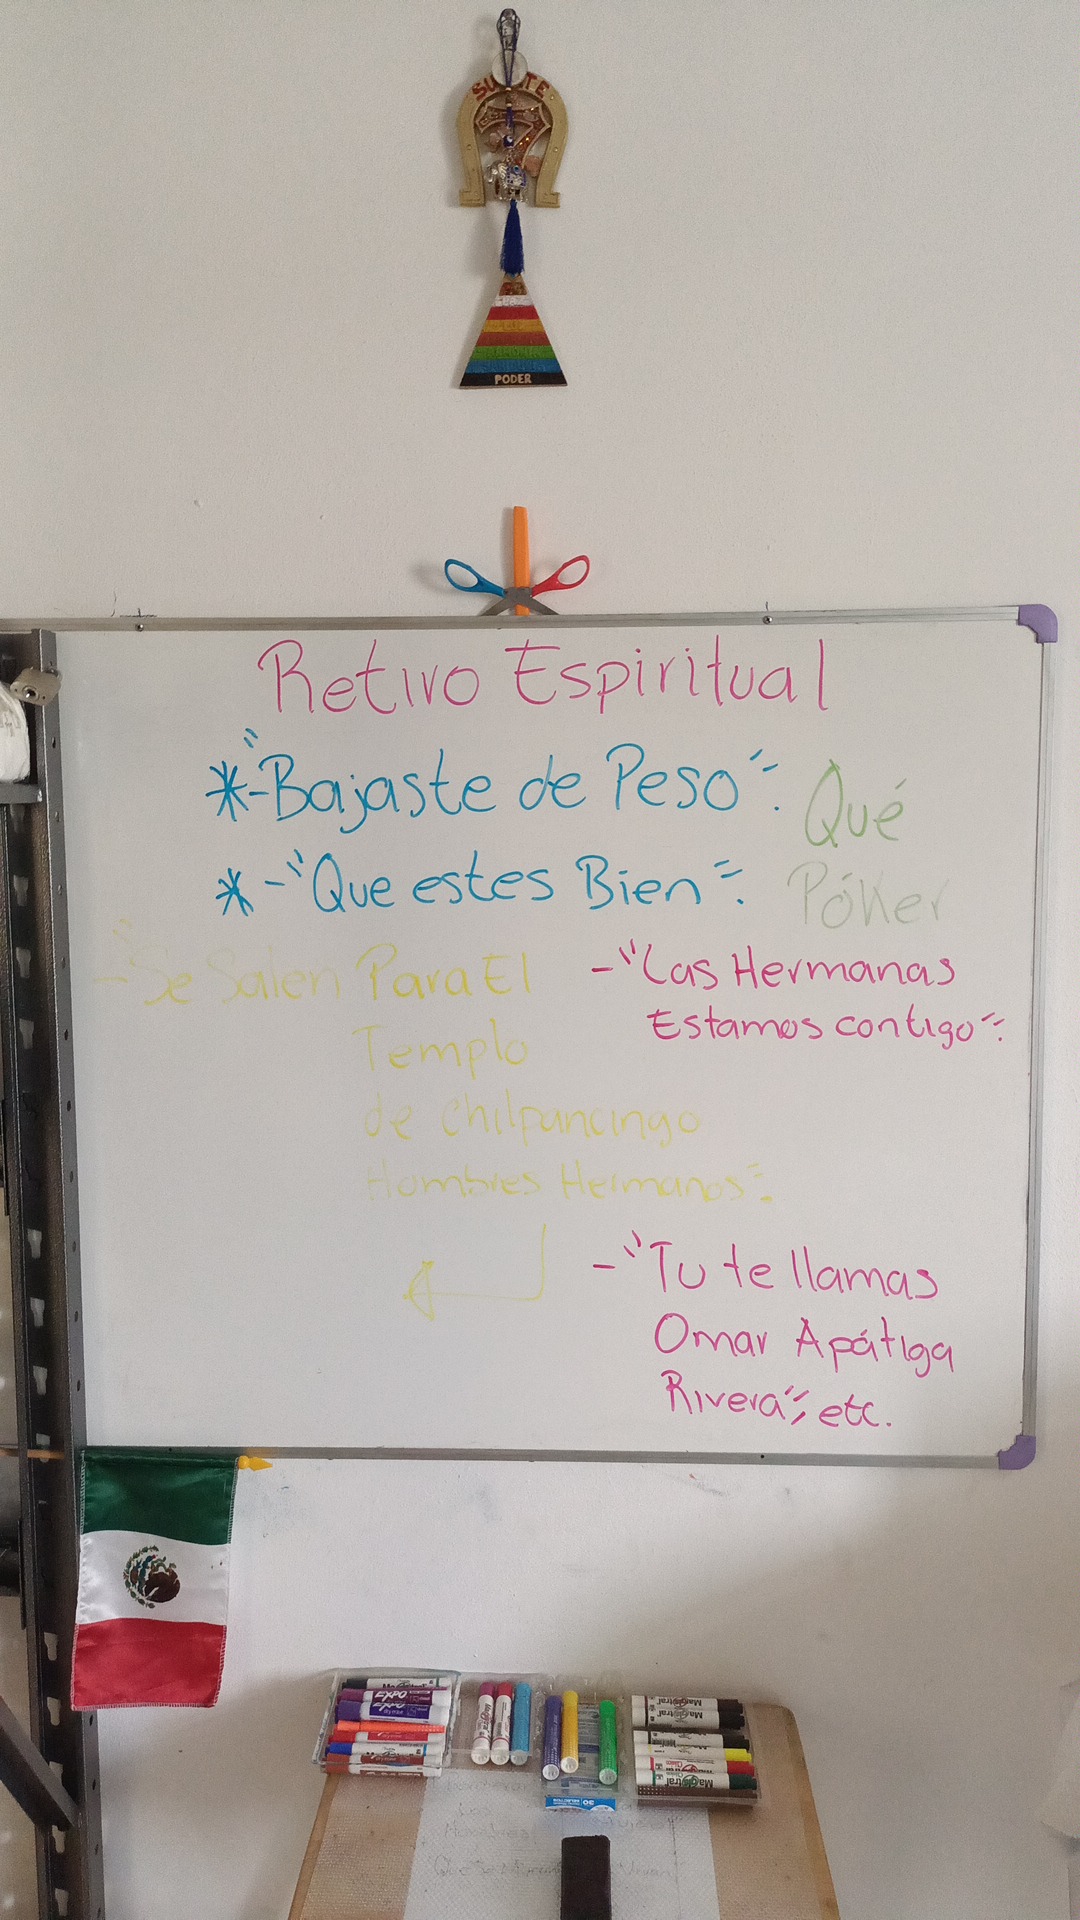 SUERTE
PODER
Retiro Espiritual
*-"Bajaste de Peso".
Qué
*-"Que estes Bien".
Póker
-"Se Salen Para El
Templo
de Chilpancingo
Hombres Hermanos".
-"Las Hermanas
Estamos contigo".
-"Tu te llamas
Omar Apátiga
Rivera", etc.
EXPO
EXPO
Magistral
Magistral
Magistral